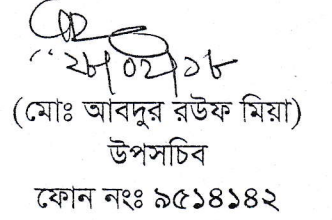 ২৮/০২/১৮
(মোঃ আবদুর রউফ মিয়া)
উপসচিব
ফোন নংঃ ৯৫১৪১৪২